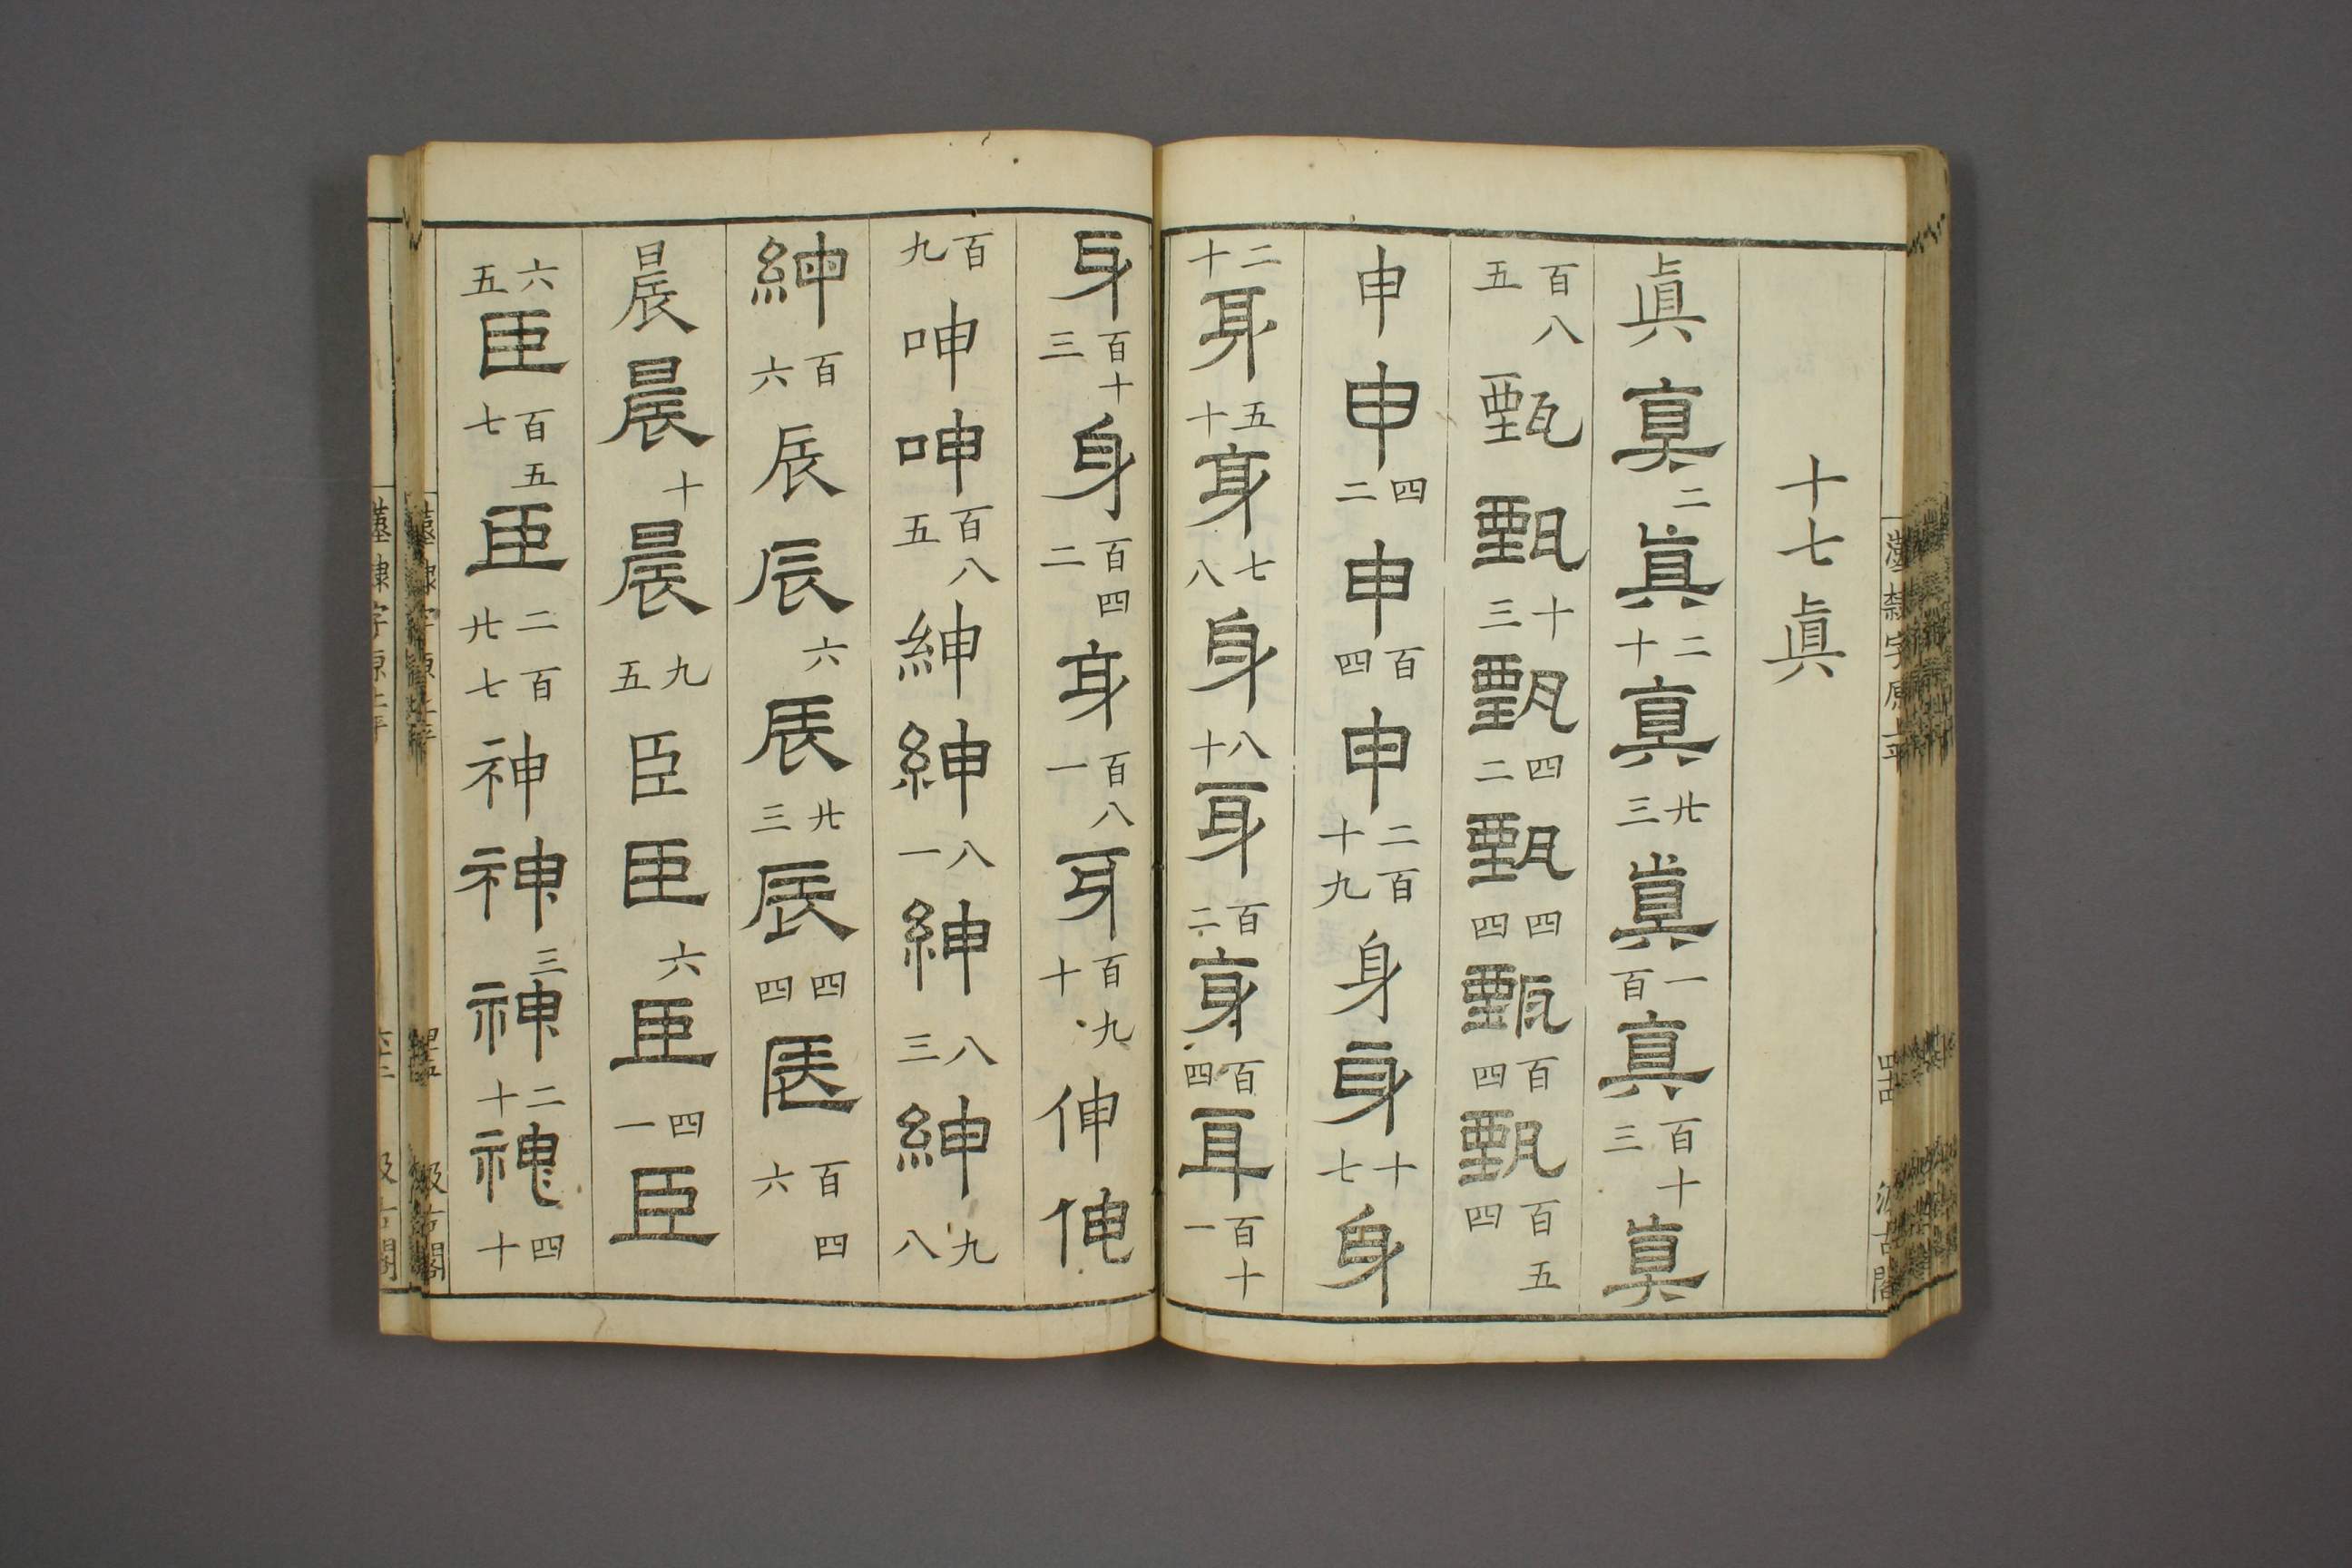 十七眞
眞真二眞二十真廿三眞一百真百十三真
百八五甄甄十三甄四二甄四四甄百四甄百五四
申申四二申百四申二百十九身身十七身
二十身五十身七八身八十身百二身百四身百十一
身百十三身百四二身百八一身百九十伸伸
百九呻呻百八五紳紳八一紳八三紳九八
紳百六辰辰六辰廿三辰四四辰百四六
晨晨十晨九五臣臣六臣四一臣
六五臣百五七臣二百廿七神神三神二十神四十
漢隸字原上平
四十四
汲古閣